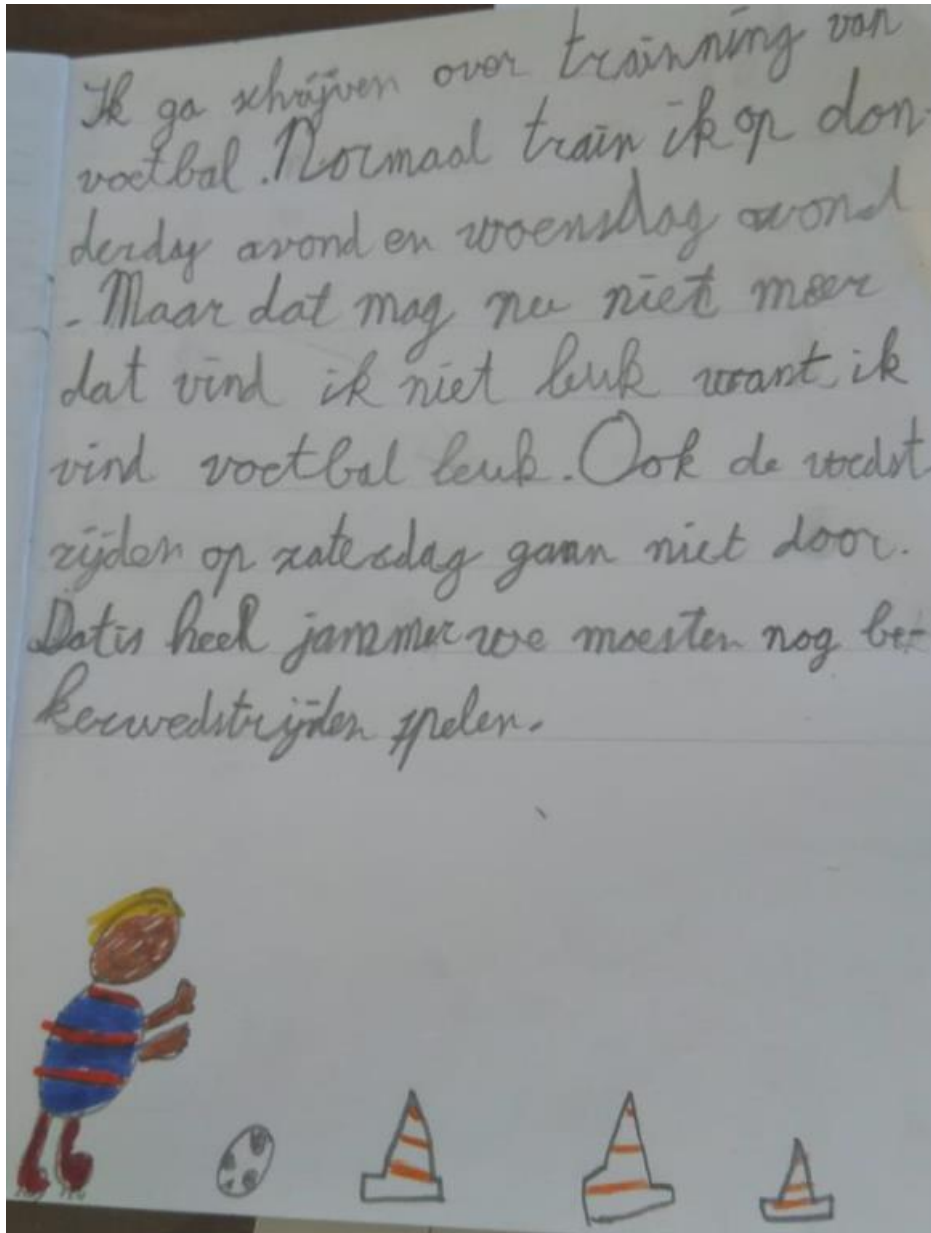 Ik ga schrijven over trainning van
voetbal. Normaal train ik op don-
derdag avond en woensdag avond
. Maar dat mag nu niet meer
dat vind ik niet leuk want ik
vind voetbal leuk. Ook de wedst
rijden op zaterdag gaan niet door.
Dat is heel jammer we moesten nog be-
kerwedstrijden spelen.